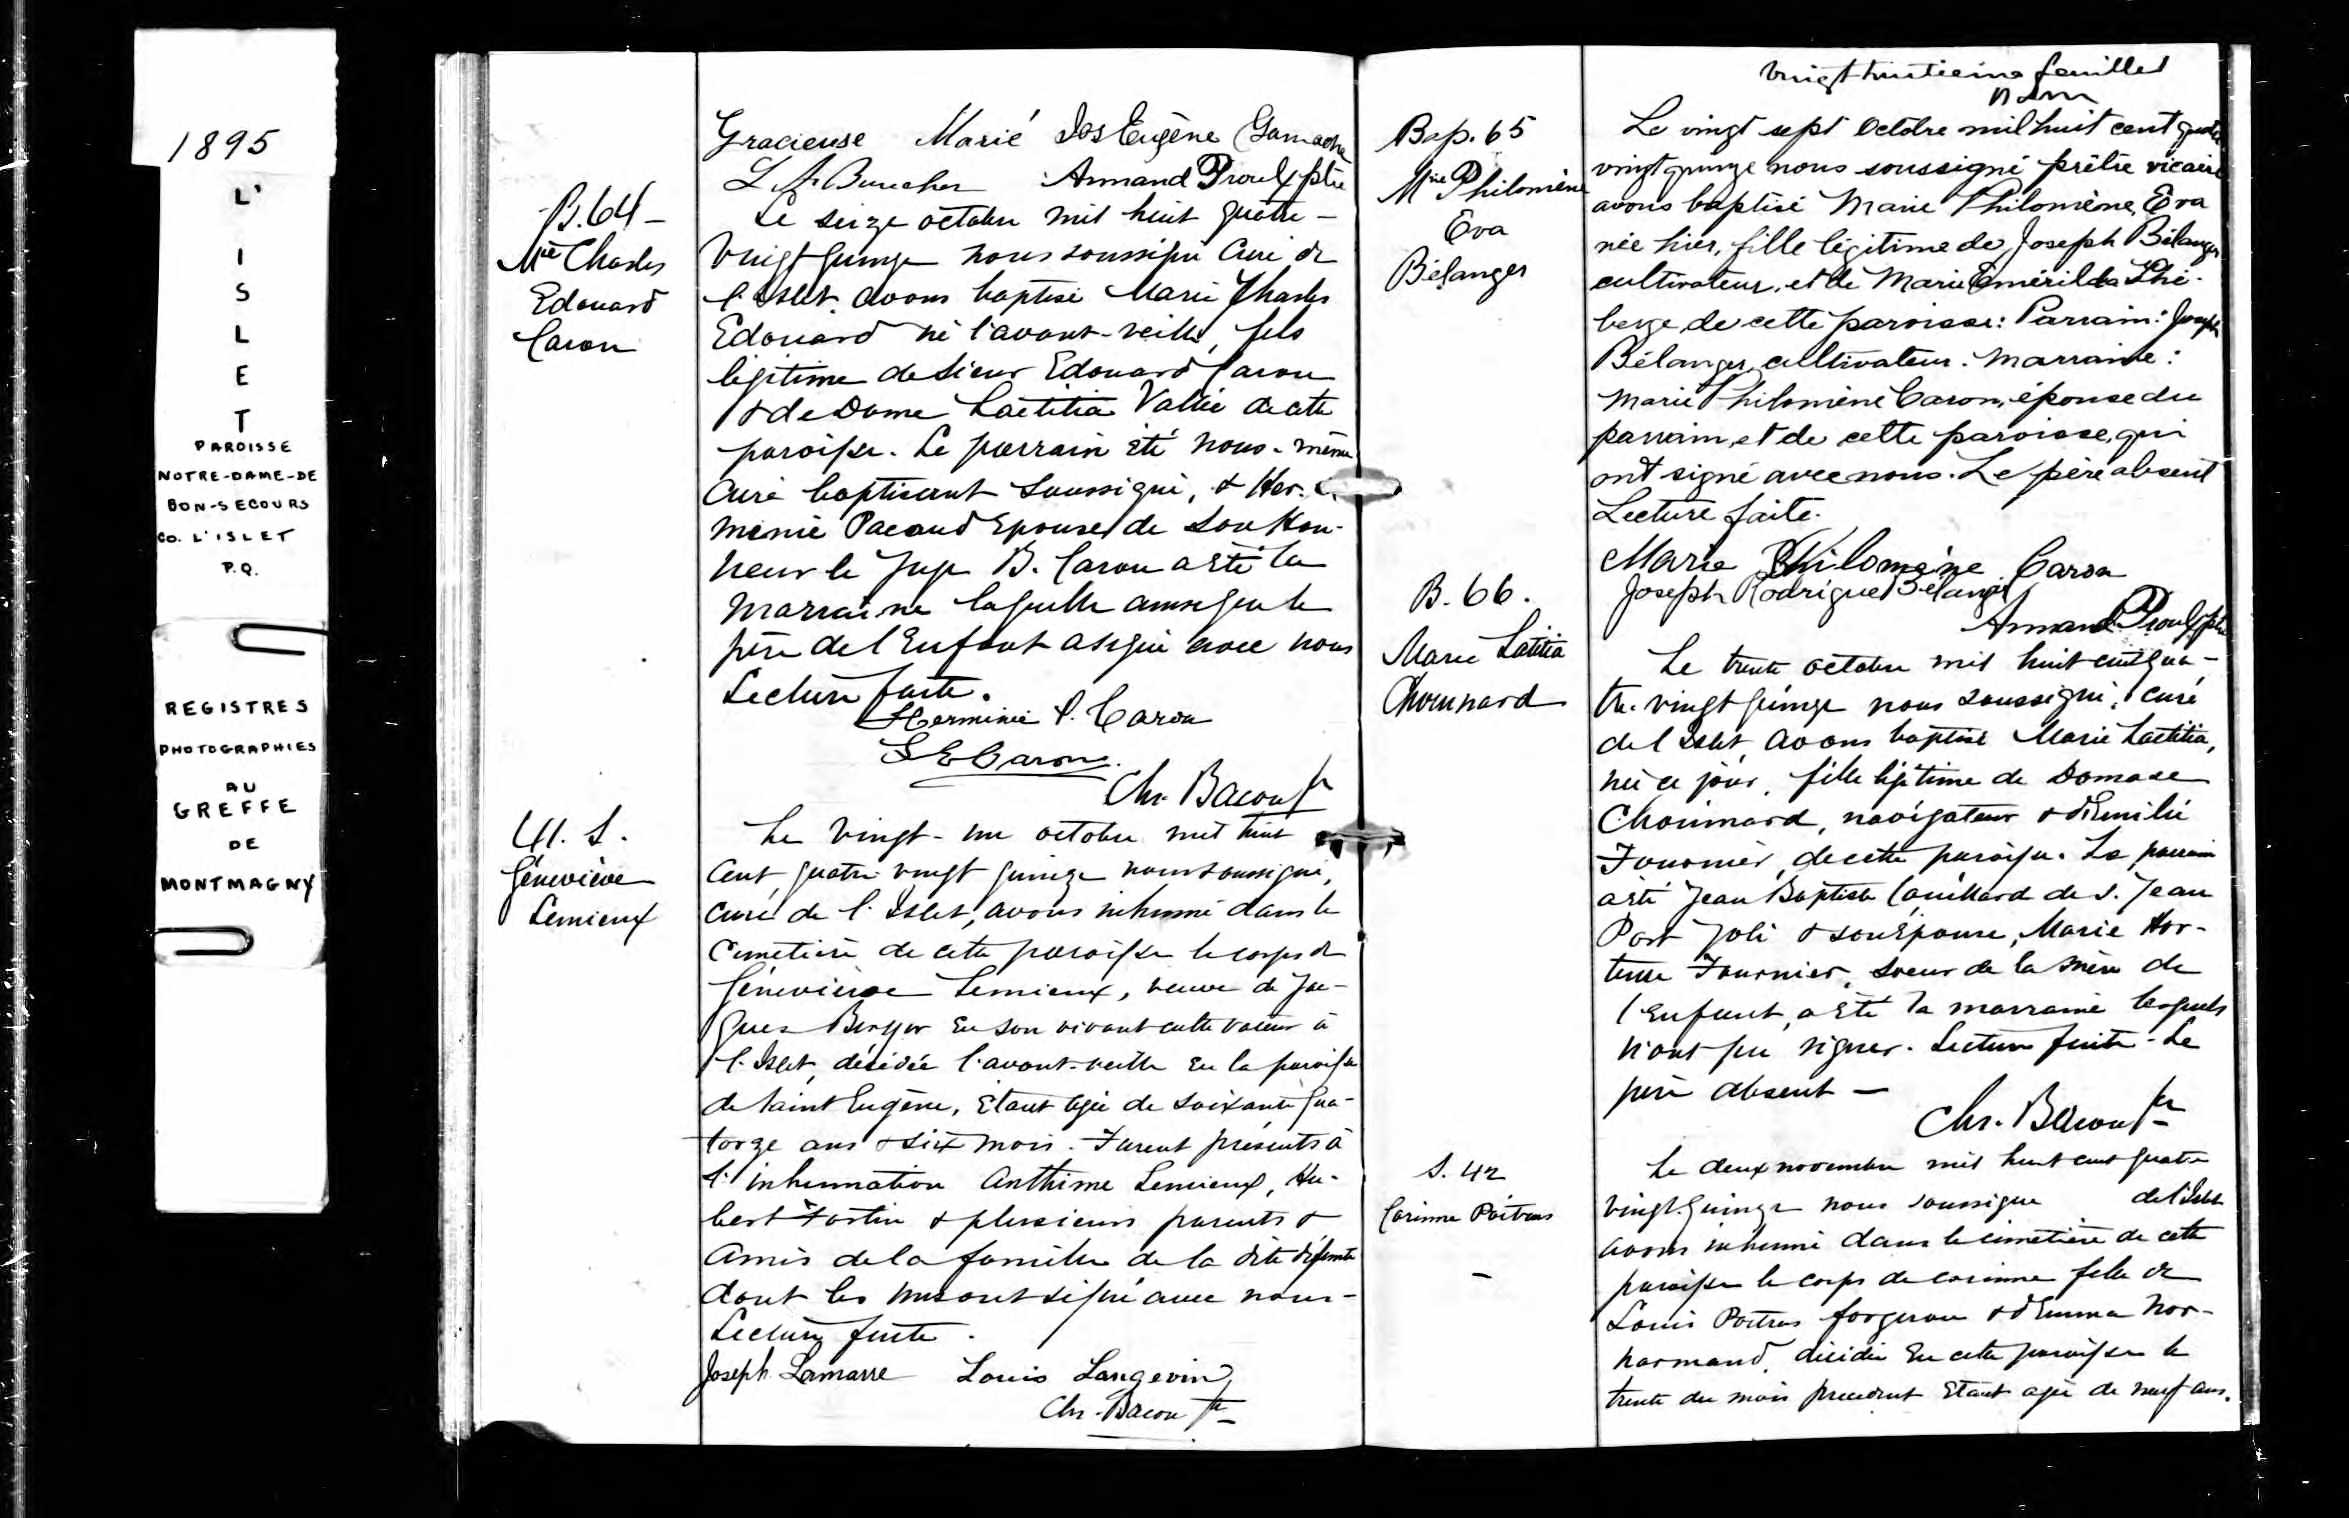 1895
L'
I
S
L
E
T
PAROISSE
NOTRE-DAME-DE
BON-SECOURS
CO. L'ISLET
P.Q.
REGISTRES
PHOTOGRAPHIES
AU
GREFFE
DE
MONTMAGNY
Gracieuse Marié Jos Eugène Gamache
Armand Proulx ptre
B. 64 -
Mie Charles
Edouard
Caron
Le seize octobre mil huit quatre-
vingt quinze nous soussigné curé de
l'Islet, avons baptisé Marie Charles
Edouard né l'avant-veille, fils
légitime de Sieur Edouard Caron
& de Dame Laetitia Vallée de cette
paroisse. Le parrain été nous-même
curé baptisant soussigné, & Her-
menie Pacaud Epouse de Son Hon-
neur le Juge B. Caron a été la
marraine laquelle ainsi que le
père de l'Enfant a signé avec nous
Lecture faite.
Herminie P. Caron
Chs. Bacon ptr
41. S.
Géneviève
Lemieux
Le vingt-un octobre mil huit
cent quatre vingt quinze nous soussigné,
curé de l'Islet, avons inhumé dans le
cimetière de cette paroisse le corps de
Géneviève Lemieux, veuve de Jac-
ques en son vivant cultivateur à
l'Islet, décédée l'avant-veille en la paroisse
de Saint Eugène, étant âgée de soixante qua-
torze ans & six mois. Furent présents à
l'inhumation Anthime Lemieux, Hu-
bert Fortin & plusieurs parents &
amis de la famille de la dite défunte
dont les uns ont signé avec nous-
Lecture faite.
Joseph Lamarre Louis Langevin
Chs. Bacon ptr
vingt huitième feuillet
Bap. 65
Mie Philomène
Eva
Bélanger
Le vingt sept Octobre mil huit cent quatre
vingt quinze nous soussigné prêtre vicaire
avons baptisé Marie Philomène, Eva
née hier, fille légitime de Joseph Bélanger
cultivateur, et de Marie Emérilda Thi-
berge de cette paroisse: Parrain: Joseph
Bélanger, cultivateur: Marraine:
Marie Philomène Caron, épouse du
parrain, et de cette paroisse, qui
ont signé avec nous. Le père absent
Lecture faite.
Marie Philomène Caron
Joseph Rodrigue Bélanger
Armand Proulx ptre
B. 66.
Marie Latitia
Chouinard
Le trente octobre mil huit cent qua-
tre-vingt quinze nous soussigné, curé
de l'Islet avons baptisé Marie Laetitia,
née ce jour, fille légitime de Damase
Chouinard, navigateur & d'Emilie
Fournier, de cette paroisse. Le parrain
a été Jean Baptiste Couillard de S. Jean
Port Joli & son Epouse, Marie Hor-
tense Fournier, soeur de la mère de
l'Enfant, a été la marraine lesquels
n'ont pu signer. Lecture faite. Le
père absent -
Chs. Bacon ptr
S. 42
Corinne Poitras
-
Le deux novembre mil huit cent quatre
vingt-quinze nous soussigné de l'Islet
avons inhumé dans le cimetière de cette
paroisse le corps de Corinne fille de
Louis Poitras forgeron & d'Emma Nor-
normand, décédée en cette paroisse le
trente du mois précédent étant âgée de neuf ans.